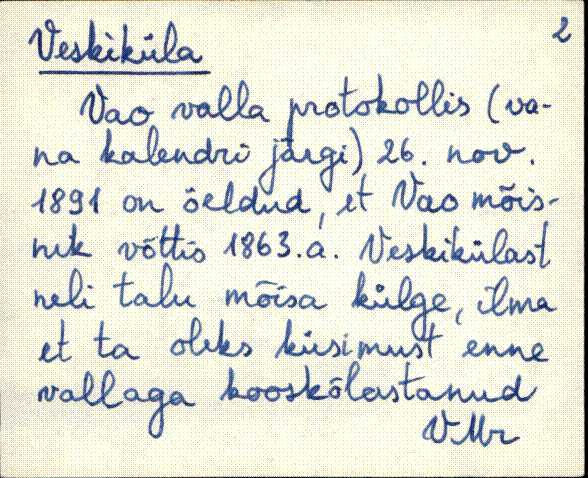 2
Veskiküla
Vao valla protokollis (va-
na kalendri järgi) 26. nov.
1891 on öeldud, et Vao mõis-
nik võttis 1863.a. Veskikülast
neli talu mõisa külge, ilma
et ta oleks küsimust enne
vallaga kooskõlastanud
VMr